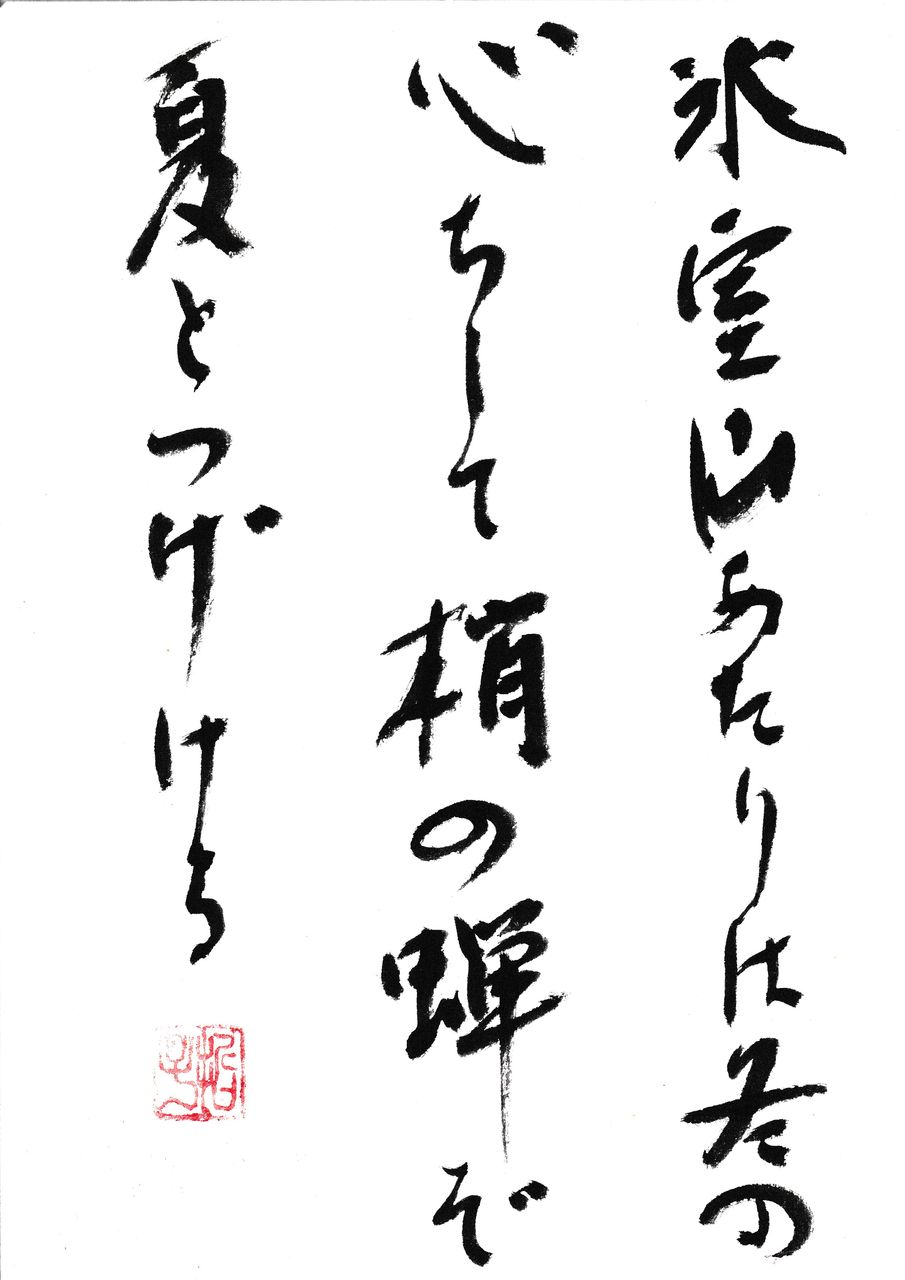 氷室山あたりは冬の
心ちして梢の蝉ぞ
夏とつげける